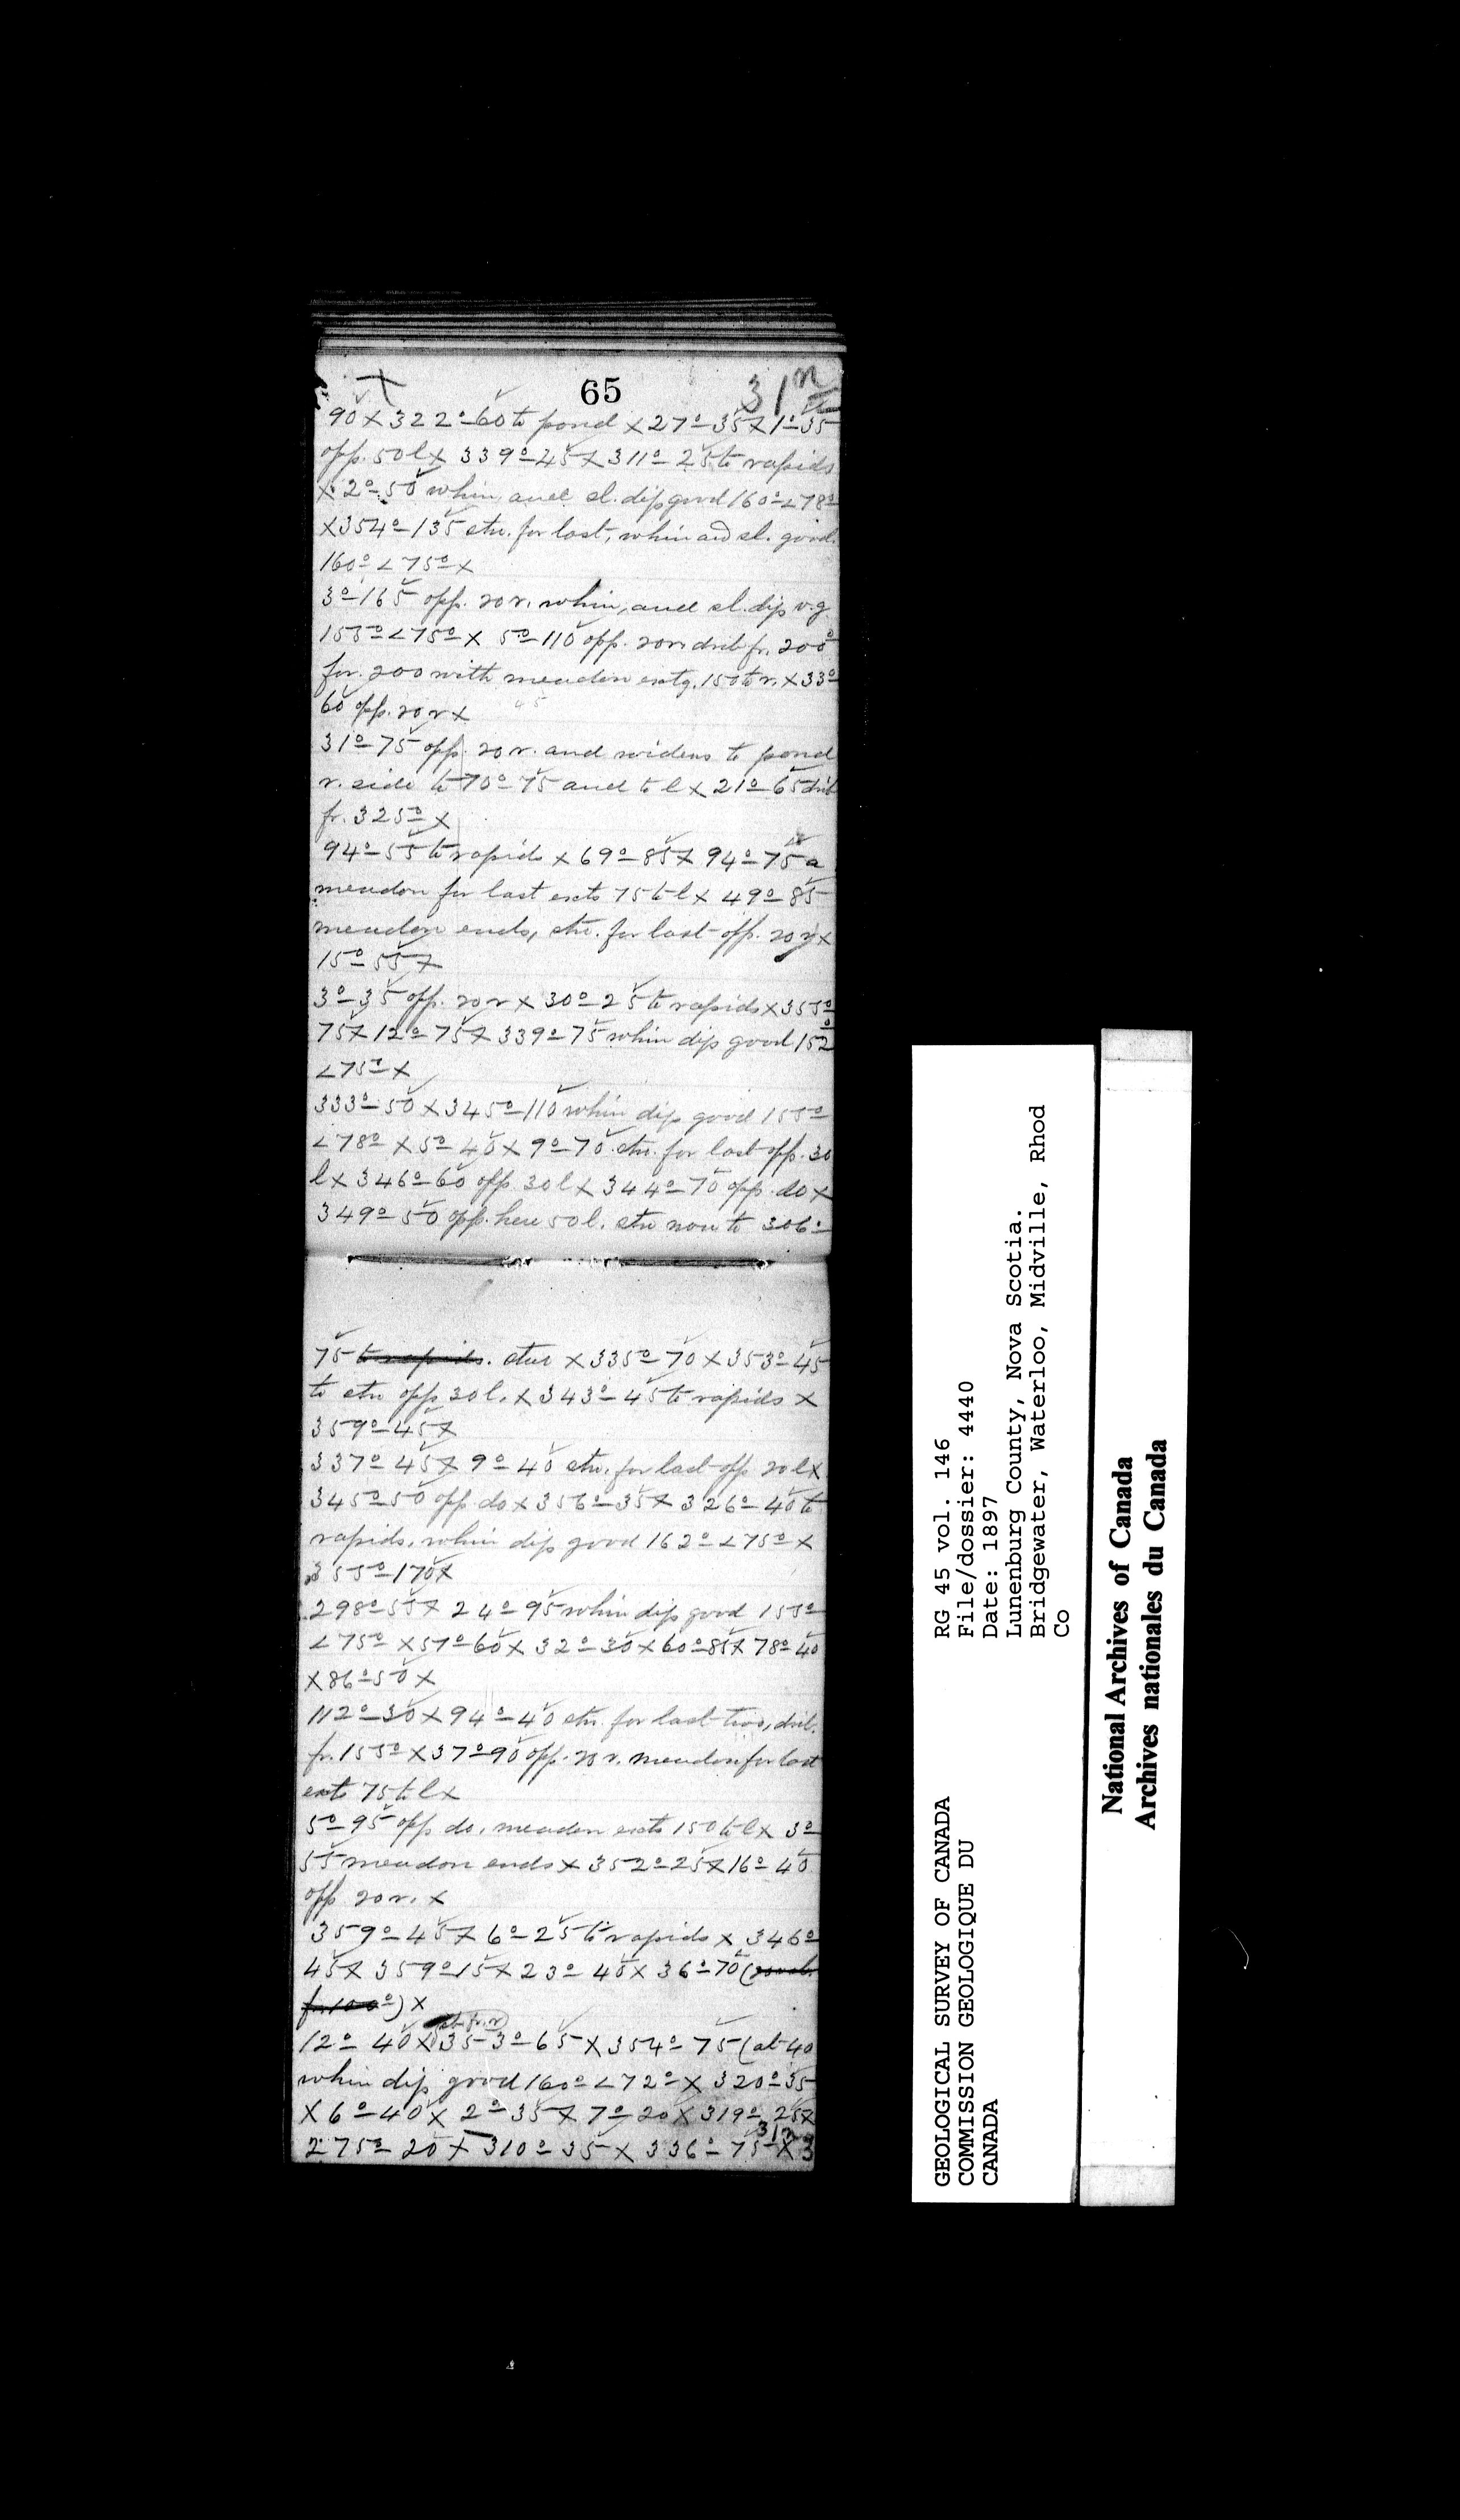 65 31
90 x 322° 60 to pond x 27° 35 x 1° 35
opp. 50 l x 339° 45 x 311° 25 to rapids
x 2° 50 whin and sl. dip good 160° < 78°
x 354° 135 stw. for last, whin and sl. good
160° < 75° x
3° 165 opp. 20 r. whin, and sl. dip v.g.
155° < 75° x 5° 110 opp. 20 r. fr. 200°
for 200 with meadow extg. 150 to r. x 33°
60 opp. 20 r x
31° 75 opp. 20 r. and widens to pond
r. side to 70° 75 and to l x 21° 65
fr. 325° x
94° 55 to rapids x 69° 85 x 94° 75 a
meadow for last exts 75 to l x 49° 85
meadow ends, stw. for last opp. 20 r x
15° 55 x
3° 35 opp. 20 r x 30° 25 to rapids x 355°
75 x 12° 75 x 339° 75 whin dip good 152°
< 75° x
333° 50 x 345° 110 whin dip good 155°
< 78° x 5° 40 x 9° 70 stw. for last opp. 30
l x 346° 60 opp. 30 l x 344° 70 opp. do x
349° 50 opp. here 50 l. stw now to 306°
75 to rapids. stw x 335° 70 x 353° 45
to stw opp 30 l. x 343° 45 to rapids x
359° 45 x
337° 45 x 9° 40 stw. for last opp 20 l x
345° 50 opp do x 356° 35 x 326° 40 to
rapids, whin dip good 162° < 75° x
355° 170 x
298° 55 x 24° 95 whin dip good 155°
< 75° x 57° 60 x 32° 30 x 60° 85 x 78° 40
x 86° 50 x
112° 30 x 94° 40 stw. for last two,
fr. 155° x 37° 90 opp. 20 r. meadow for last
exts 75 to l x
5° 95 opp do, meadow exts 150 to l x 3°
55 meadow ends x 352° 25 x 16° 40
opp 20 r. x
359° 45 x 6° 25 to rapids x 346°
45 x 359° 15 x 23° 40 x 36° 70 (
fr 100°) x
12° 40 x 353° 65 x 354° 75 (at 40
whin dip good 160° < 72° x 320° 35
x 6° 40 x 2° 35 x 7° 20 x 319° 25 x
275° 20 x 310° 35 x 336° 75 x 3
RG 45 vol. 146
File/dossier: 4440
Date: 1897
Lunenburg County, Nova Scotia.
Bridgewater, Waterloo, Midville, Rhod
Co
GEOLOGICAL SURVEY OF CANADA
COMMISSION GEOLOGIQUE DU
CANADA
National Archives of Canada
Archives nationales du Canada